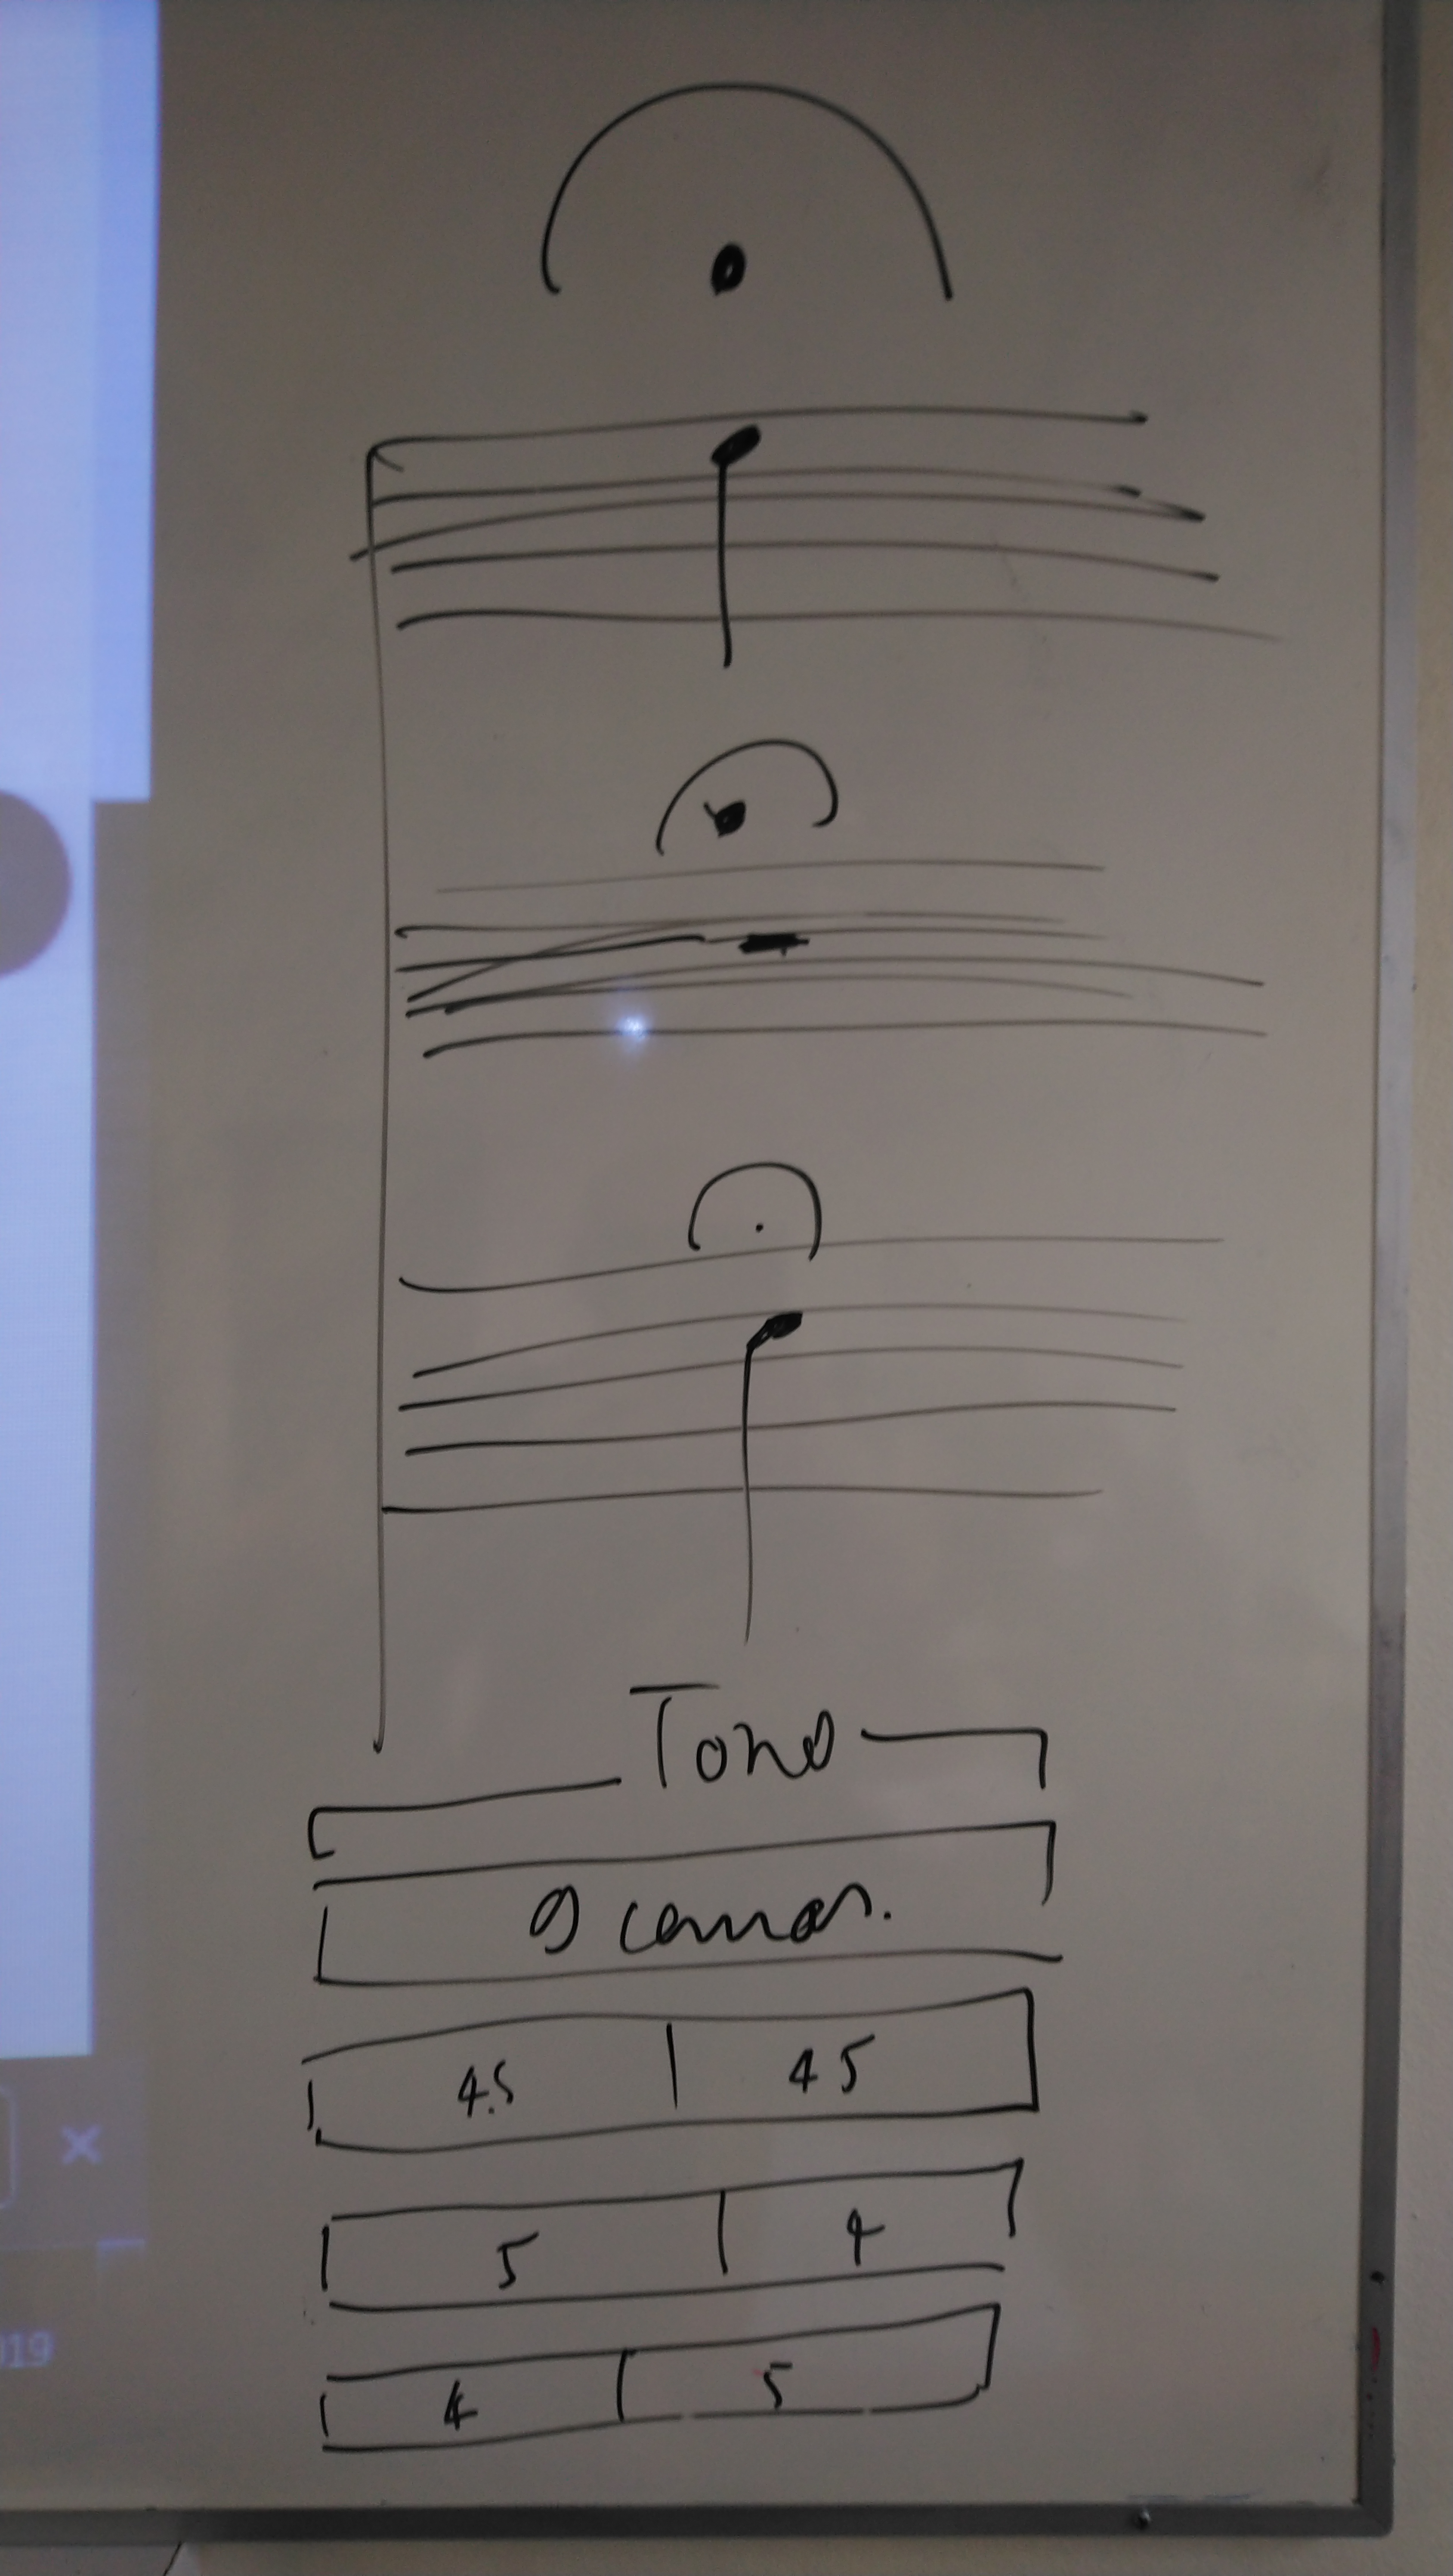 Tono
9 comas.
4.5 4.5
5 4
4 5
019